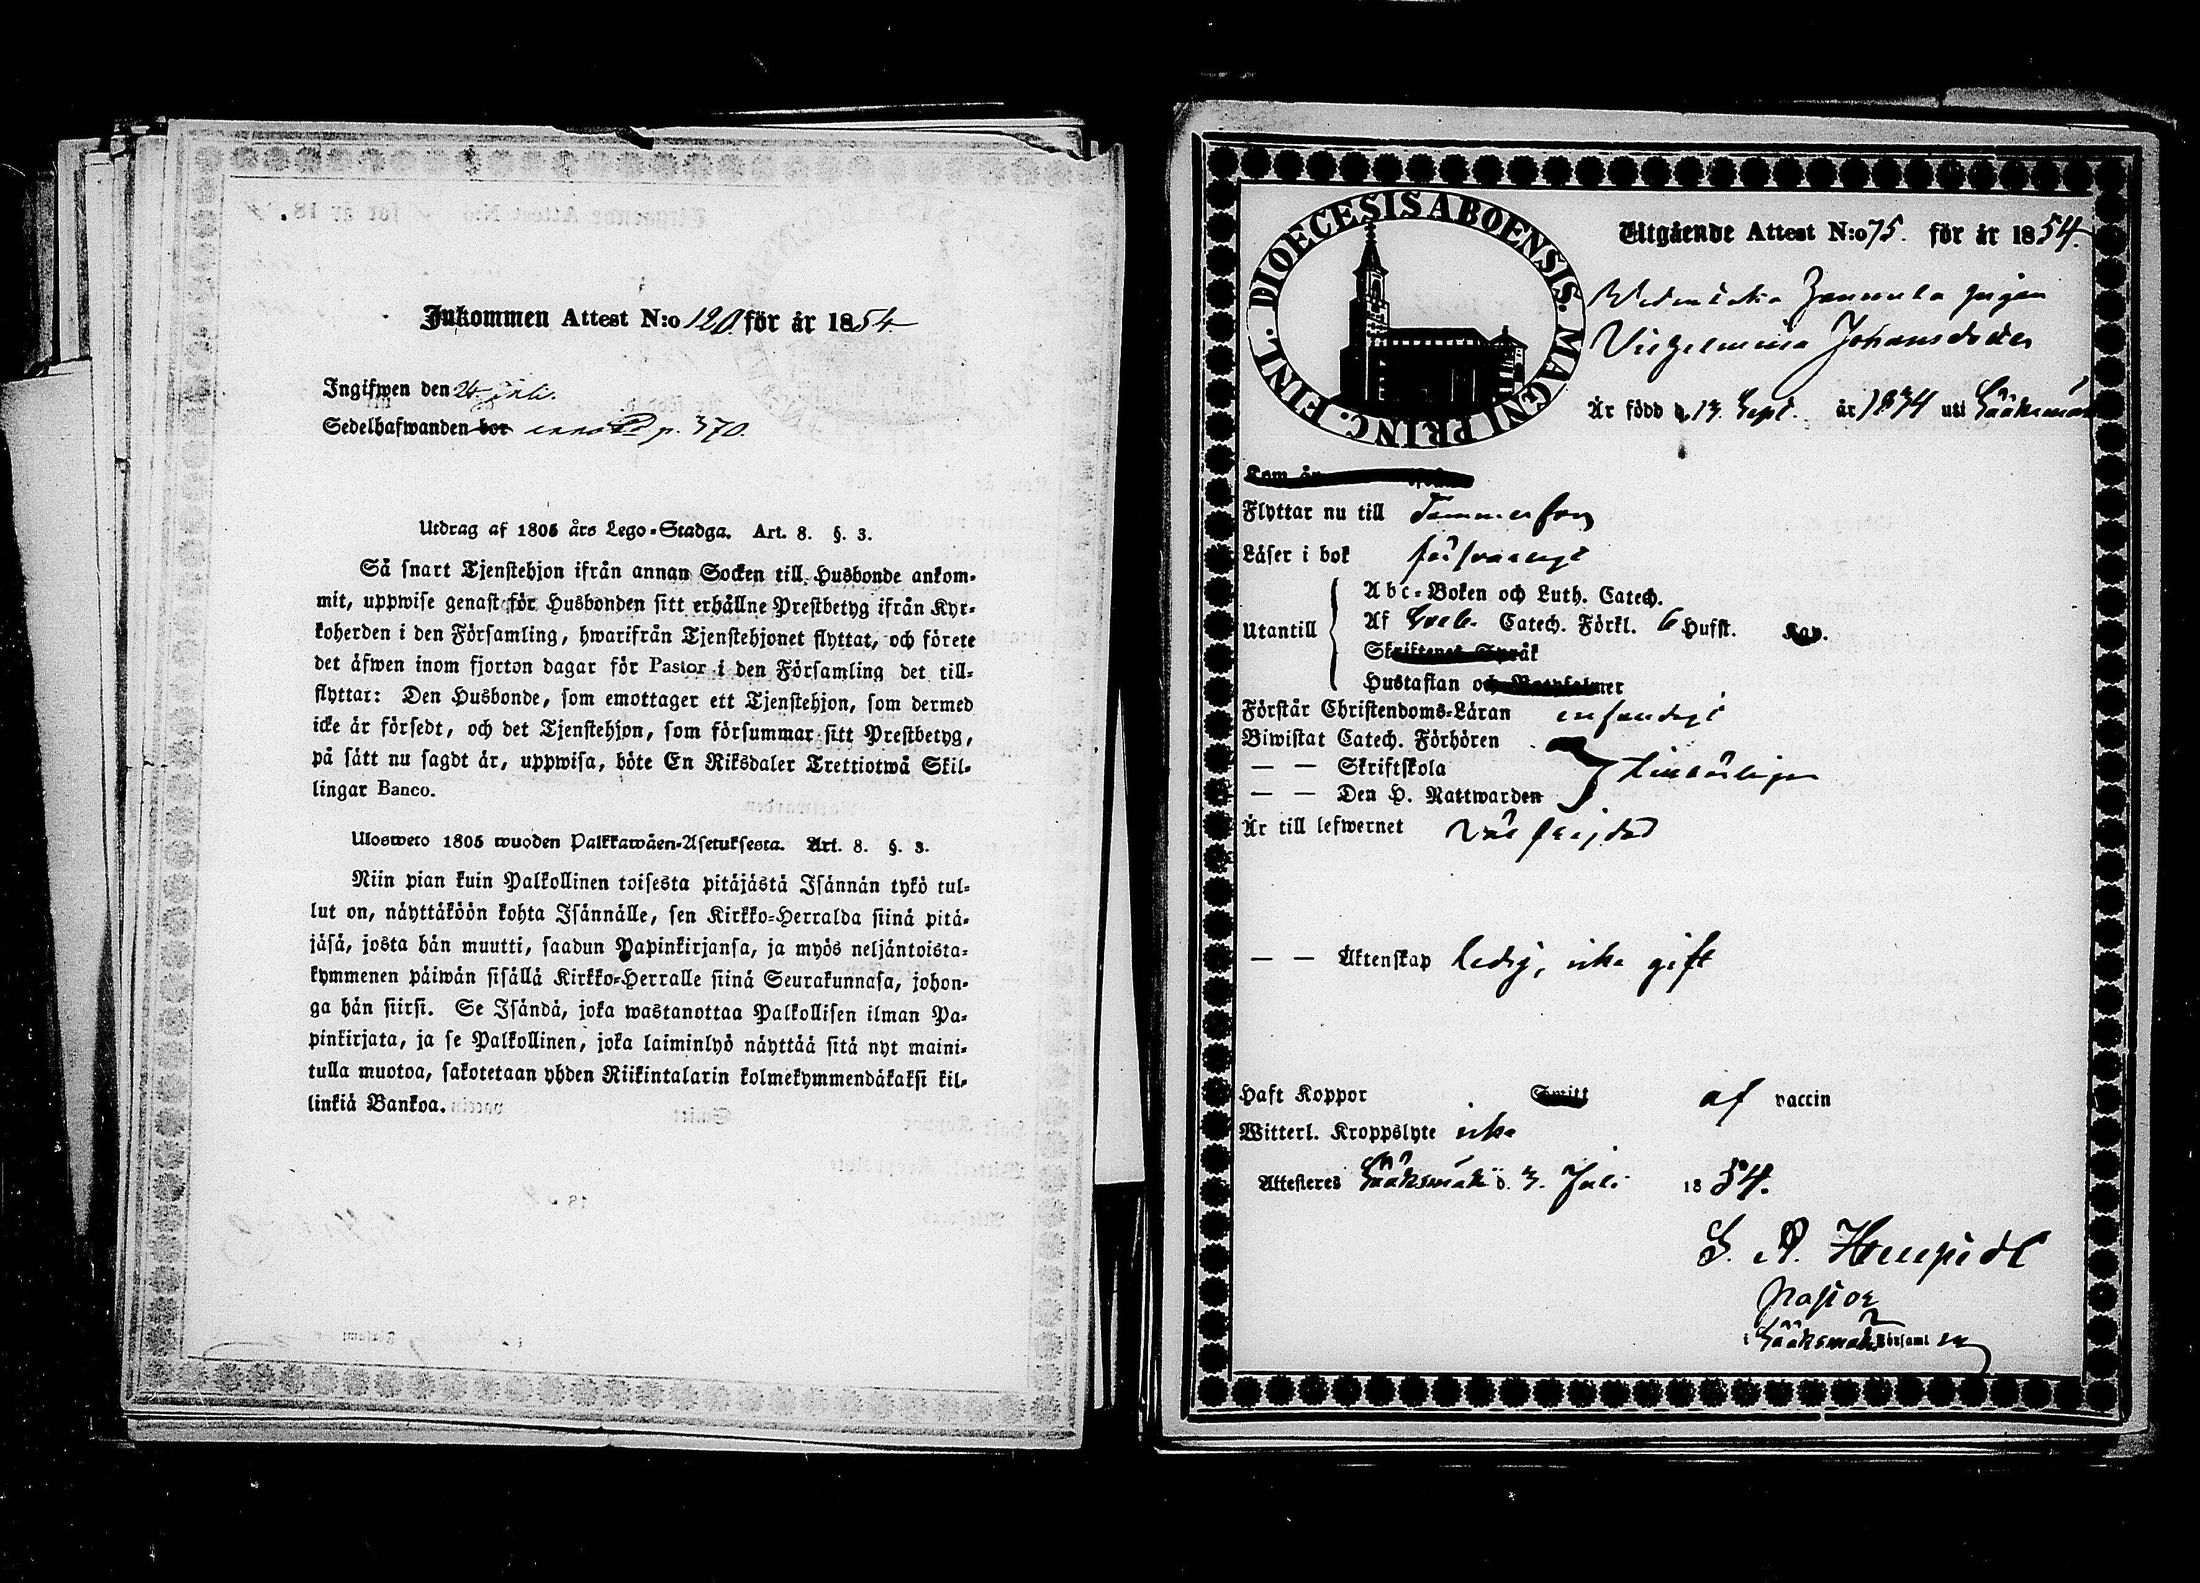 Inkommen Attest N:o 120. för år 1854
Ingifwen den 24. Juli.
Sedelhafwanden bor p. 370.
Utdrag af 1805 års Lego-Stadga. Art. 8. §. 3.
Så snart Tjenstehjon ifrån annan Socken till Husbonde ankom-
mit, uppwise genast för Husbonden sitt erhållne Prestbetyg ifrån Kyr-
koherden i den Församling, hwarifrån Tjenstehjonet flyttat, och förete
det äfwen inom fjorton dagar för Pastor i den Församling det till-
flyttat: Den Husbonde, som emottager ett Tjenstehjon, som dermed
icke är försedt, och det Tjenstehjon, som försummar sitt Prestbetyg,
på sätt nu sagdt är, uppwisa, böte En Riksdaler Trettiotwå Skil-
lingar Banco.
Ulosweto 1805 wuoden Palkkawäen-Asetuksesta. Art. 8. §. 3.
Niin pian kuin Palkollinen toisesta pitäjästä Isännän tykö tul-
lut on, näyttäköön kohta Isännälle, sen Kirkko-Herralda siinä pitä-
jäsä, josta hän muutti, saadun Papinkirjansa, ja myös neljäntoista-
kymmenen päiwän sisällä Kirkko-Herralle siinä Seurakunnasa, johon-
ga hän siirsi. Se Isändä, joka wastanottaa Palkollisen ilman Pa-
pinkirjata, ja se Palkollinen, joka laiminlyö näyttää sitä nyt maini-
tulla muotoa, sakotetaan yhden Riikintalarin kolmekymmendäkaksi kil-
linkiä Bankoa.
FINL. DIOECESIS ABOENSIS. MAGNI PRINC.
Utgående Attest N:o 75. för år 1854.
pigan
Vilhelmina Johansdotter
Är född d. 13 Sept. år 1834 uti Sääksmäki
Flyttar nu till Tammerfors
Läser i bok försvarligt
Utantill
Abc-Boken och Luth. Catech.
Af Sveb. Catech. Förkl. 6 Hufst. Kap.
Skriftenes Språk
Hustaflan och Botpsalmer
Förstår Christendoms-Läran enfaldigt
Biwistat Catech. Förhören
— — Skriftskola tillbörligen
— — Den H. Nattwarden
Är till lefwernet väl frejdad
— — Äktenskap ledig, icke gift
Haft Koppor Smitt af vaccin
Witterl. Kroppslyte icke
Attesteres Sääksmäki d. 3. Juli 1854.
Pastor
i Sääksmäki Församl en